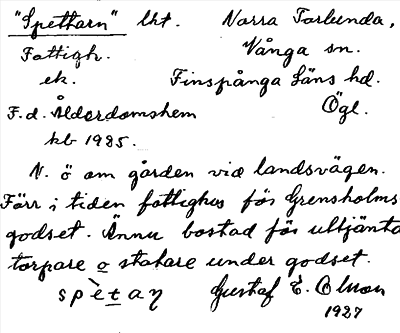 "Spettarn" lht. Norra Torlunda,
Fattigh. Vånga sn.
ek. Finspånga Läns hd.
F.d. Ålderdomshem Ögl.
kb 1925.
N. ö om gården vid landsvägen.
Förr i tiden fattighus för Grensholms
godset. Ännu bostad för uttjänta
torpare o statare under godset.
spètaɳ Gustaf E. Olsson
1927